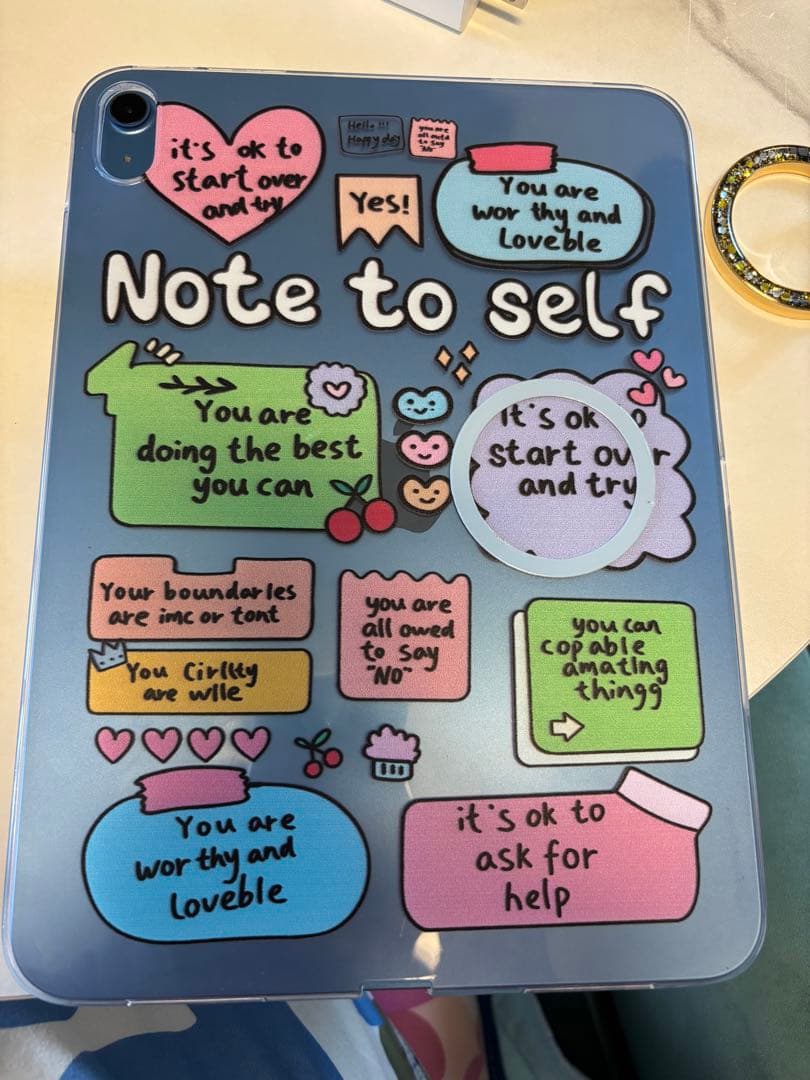 it's ok to
start over
and try
Hello !!!
Happy day
you are
all owed
to say
"NO"
Yes!
You are
wor thy and
Loveble
Note to self
You are
doing the best
you can
it's ok o
start ov r
and try
Your boundarles
are imc or tont
you are
all owed
to say
"NO"
You Cirlkty
are wlle
you can
cop able
amatlng
thingg
You are
wor thy and
Loveble
it's ok to
ask for
help